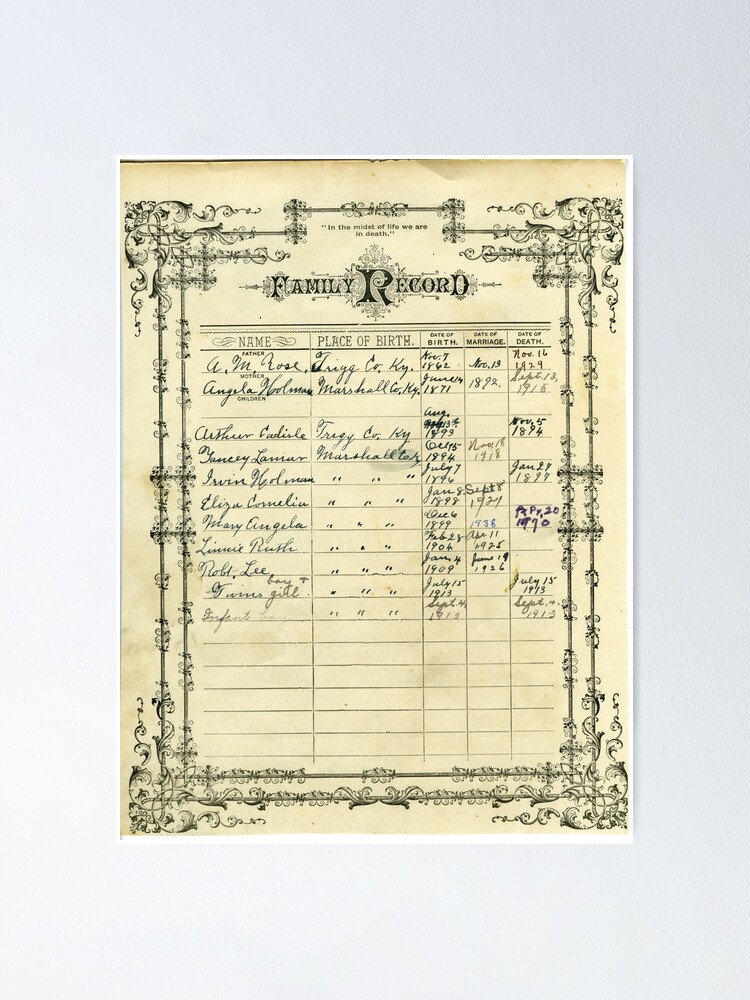 "In the midst of life we are
in death."
FAMILY RECORD
NAME PLACE OF BIRTH. DATE OF BIRTH. DATE OF MARRIAGE. DATE OF DEATH.
FATHER
A. M. Rose, Trigg Co, Ky. Nov. 7 1862 Nov. 13 Nov. 16 1929
MOTHER
Angela Holman Marshall Co, Ky. June 14 1871 1892. Sept. 13,
CHILDREN
Arthur Trigg Co. Ky Aug. 13th 1893 Nov. 5 1894
Yancey Lamar Marshall Co Oct 15 1894 Nov. 18 1918
Irvin Holman " " " July 7 1896 Jan 27
Eliza Cornelia " " " Jan 8, 1898 Sept 8
Mary Angela " " " Dec 6 1899 1938 Apr. 20 1970
Linnie Ruth " " " Feb 28 1904 Apr 11 1925
Robt. Lee " " " Jan. 4 1909 June 19 1926
Twins boy + girl " " " July 15 1913 July 15 1913
Infant " " " Sept. 4, Sept. 4.